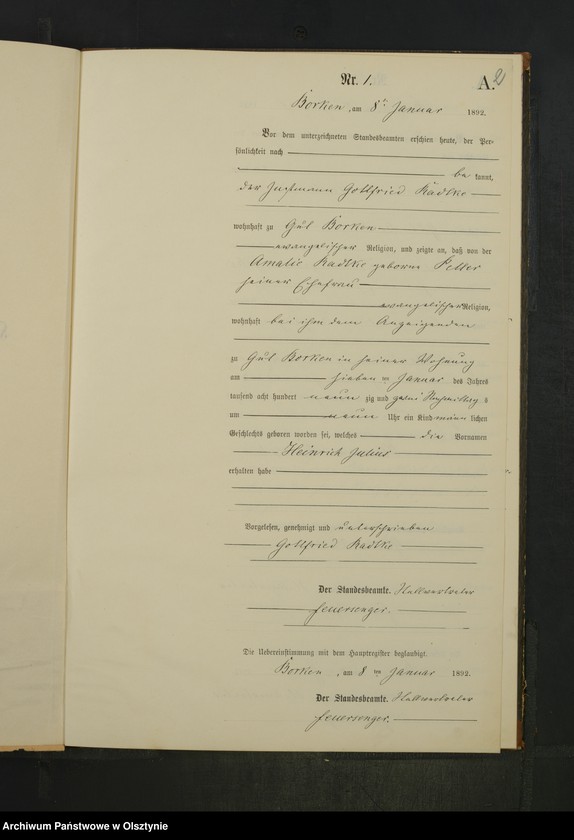 Nr. 1.
A. 2
Borken, am 8ten Januar 1892.
Vor dem unterzeichneten Standesbeamten erschien heute, der Per-
sönlichkeit nach
be kannt,
der Instmann Gottfried Radtke
wohnhaft zu Gut Borken
evangelischer Religion, und zeigte an, daß von der
Amalie Radtke geborne
seiner Ehefrau
evangelischer Religion,
wohnhaft bei ihm dem Anzeigenden
zu Gut Borken in seiner Wohnung
am sieben ten Januar des Jahres
tausend acht hundert neun zig und zwei Nachmittag s
um neun Uhr ein Kind männ lichen
Geschlechts geboren worden sei, welches die Vornamen
Heinrich Julius
erhalten habe
Vorgelesen, genehmigt und unterschrieben
Gottfried Radtke
Der Standesbeamte.
Die Uebereinstimmung mit dem Hauptregister beglaubigt.
Borken, am 8 ten Januar 1892.
Der Standesbeamte.
Archiwum Państwowe w Olsztynie